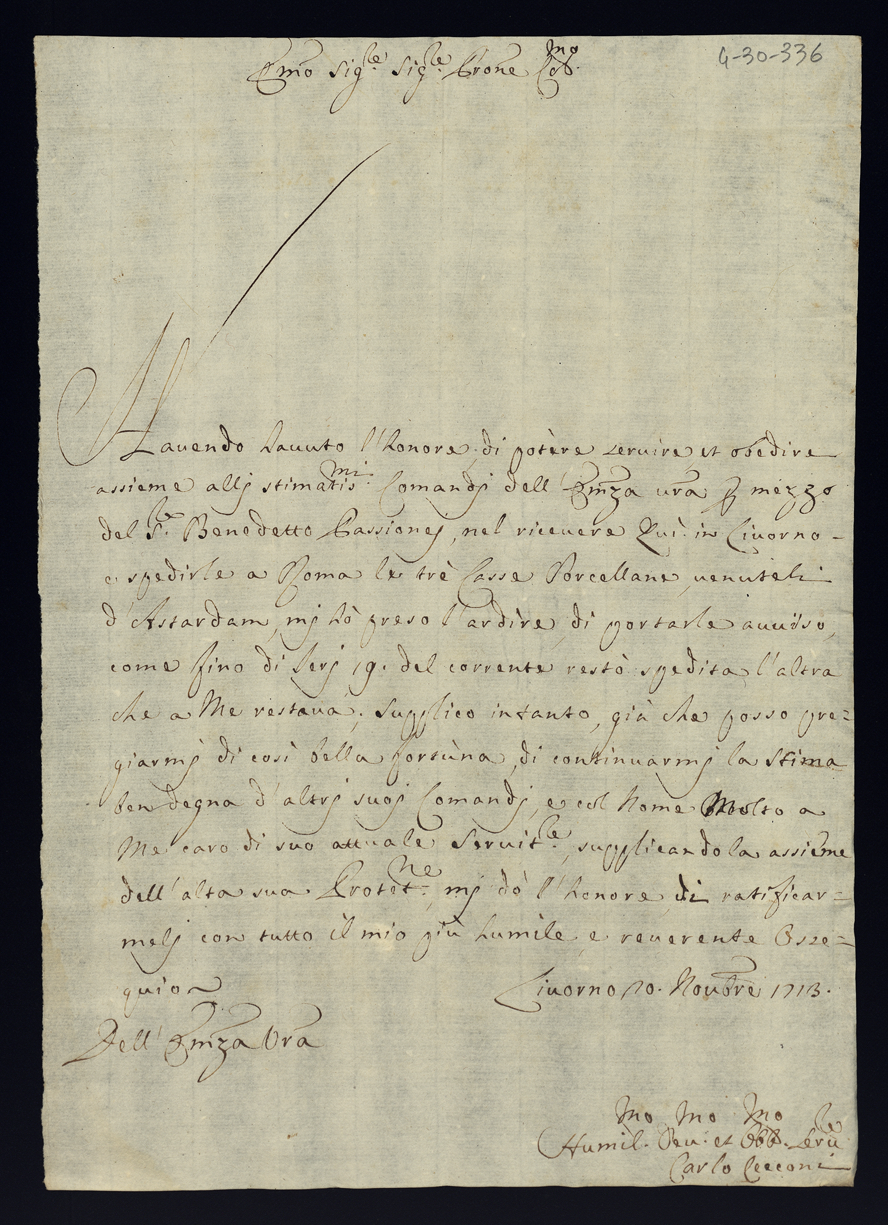 4-30-336
Emo Sig.re Sig.re Prone Col.mo
Havendo havuto l'honore, di potère servire et obedire
assieme allj stimatis.mi Comandj dell'Emza vra p mezzo
del S.r Benedetto Passionej, nel ricevere Quì in Livorno
e spedirle a Roma le trè Casse Porcellane, venuteli
d'Astardam, mj hò preso l'ardìre, di portarle avviso,
come fino di serj 19. del corrente restò spedita, l'altra
che a Me restava; supplico intanto, già che posso pre=
giarmj di così bella fortùna, di continuarmj la stima
ben degna d'altrj suoj Comandj, e col Nome Molto a
Me caro di suo attuale Servit.re, supplicandola assieme
dell'alta sua Protet.ne, mj dò l'honore, di ratificar=
melj con tutto il mio più humile, e reverente Osse=
quio
Livorno 20. Novbre 1713.
Dell'Emza Vra
Humil.mo Dev.mo et Obb.mo Serv.re
Carlo Cecconi